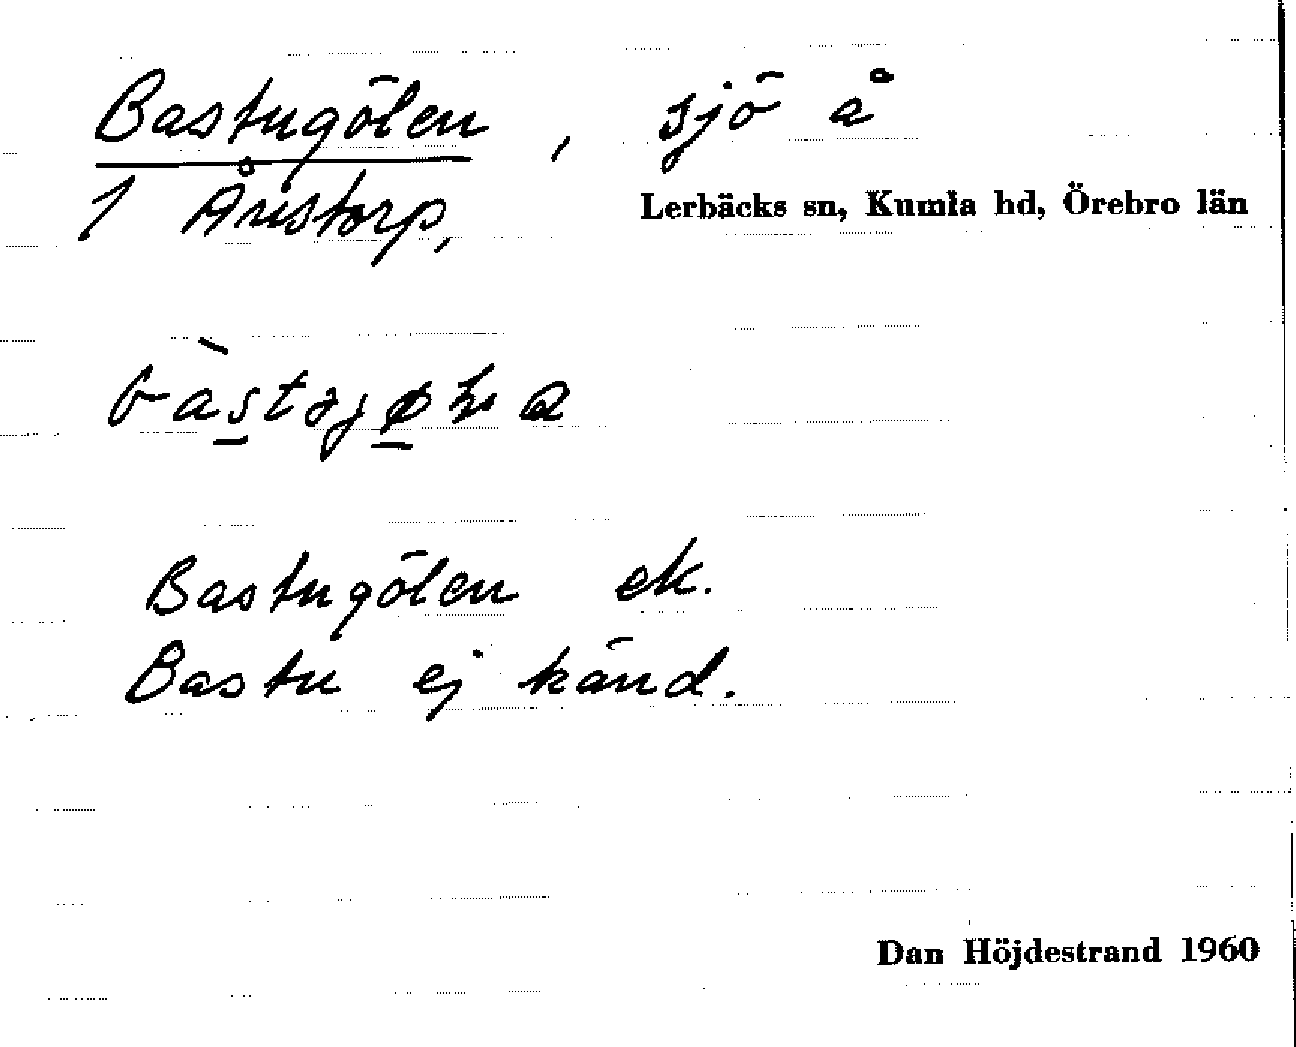 Bastugölen, sjö å
1 Åvistorp, Lerbäcks sn, Kumla hd, Örebro län
Bastugölen ek.
Bastu ej känd.
Dan Höjdestrand 1960